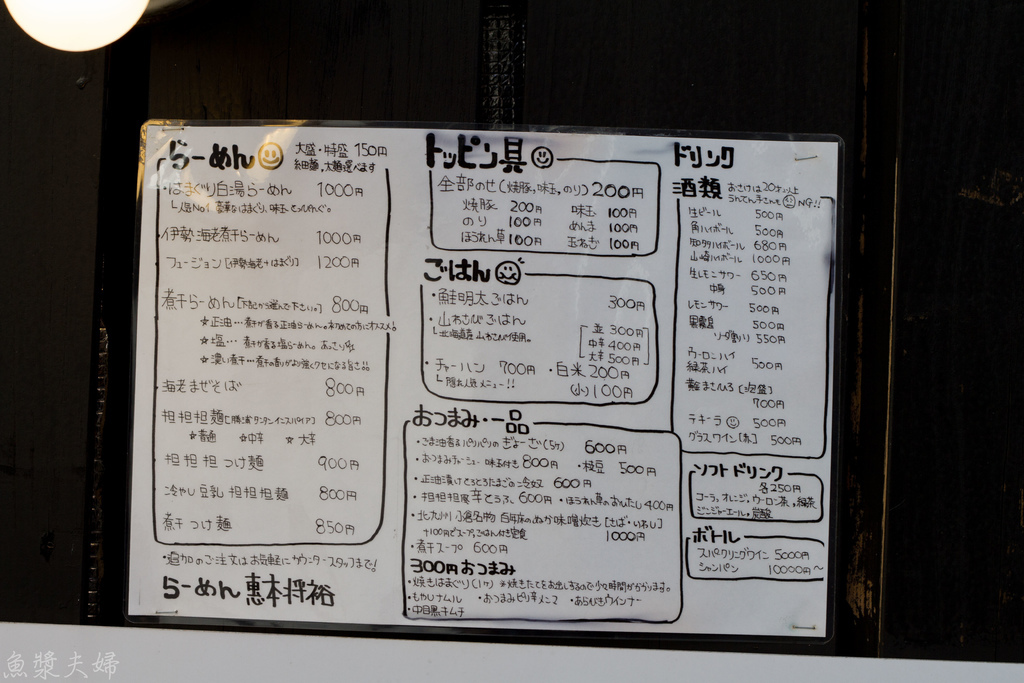 らーめん
大盛・特盛 150円
細麺、太麺選べます
・はまぐり白湯らーめん 1000円
伊勢海老煮干らーめん 1000円
フュージョン[伊勢海老+はまぐり] 1200円
煮干らーめん[下記から選んで下さい] 800円
☆正油…煮干が香る正油らーめん。初めての方にオススメ!
☆塩…煮干が香る塩らーめん。あっさり
☆濃い煮干…煮干の香りがより強くクセになる旨さ!!
海老まぜそば 800円
担担担麺[勝浦タンタンインスパイア] 800円
☆普通 ☆中辛 ☆大辛
担担担つけ麺 900円
冷やし豆乳担担担麺 800円
煮干つけ麺 850円
・追加のご注文はお気軽にカウンタースタッフまで!
らーめん 惠本将裕
トッピン具
全部のせ(焼豚、味玉、のり) 200円
焼豚 200円 味玉 100円
のり 100円 めんま 100円
ほうれん草 100円 玉ねぎ 100円
ごはん
・鮭明太ごはん 300円
・山わさびごはん
北海道産山わさび使用。
並 300円
中辛 400円
大辛 500円
・チャーハン 700円 ・白米 200円
隠れ人気メニュー!! (小)100円
おつまみ・一品
・ごま油香るパリパリのぎょーざ(5ケ) 600円
・おつまみチャーシュー 味玉付き 800円 ・枝豆 500円
・正油漬けとろとろたまごの冷奴 600円
・担担担麻辛とうふ 600円 ・ほうれん草のおひたし 400円
・北九州 小倉名物 百年床のぬか味噌炊き[さば・いわし]
+100円でスープ、ごはん付き定食 1000円
・煮干スープ 600円
300円おつまみ
・焼きはまぐり(1ケ) ※焼きたてをお出しするので少々時間がかかります。
・もやしナムル ・おつまみピリ辛メンマ ・あらびきウインナー
・中目黒キムチ
ドリンク
酒類 お酒は20才以上
うんてん手さんも NG!!
生ビール 500円
角ハイボール 500円
知多ハイボール 680円
山崎ハイボール 1000円
生レモンサワー 650円
中身 500円
レモンサワー 500円
黒霧島 500円
ソーダ割り 550円
ウーロンハイ
緑茶ハイ 500円
まさひろ[泡盛]
700円
テキーラ 500円
グラスワイン[赤] 500円
ソフトドリンク
各250円
コーラ、オレンジ、ウーロン茶、緑茶
ジンジャーエール、炭酸
ボトル
スパークリングワイン 5000円
シャンパン 10000円〜
魚漿夫婦